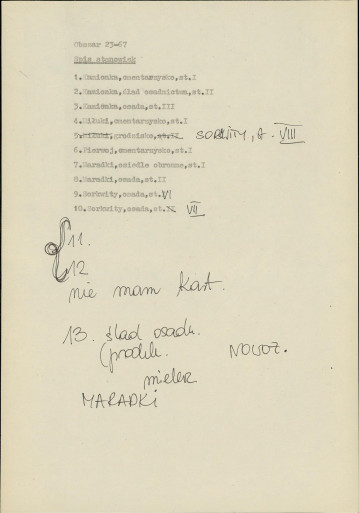 Obszar 23-67
Spis stanowisk
1.Kamionka,cmentarzysko,st.I
2.Kamionka,ślad osadnictwa,st.II
3.Kamionka,osada,st.III
4.Miłuki,cmentarzysko,st.I
5. grodzisko, SORKWITY, st. VIII
6.Pierwoj,cmentarzysko,st.I
7.Maradki,osiedle obronne,st.I
8.Maradki,osada,st.II
9.Sorkwity,osada,st.VI
10.Sorkwity,osada,st. VII
11.
12
nie mam kart.
13. ślad osadn.
(prodek. NOWOŻ.
mielerz
MARADKI